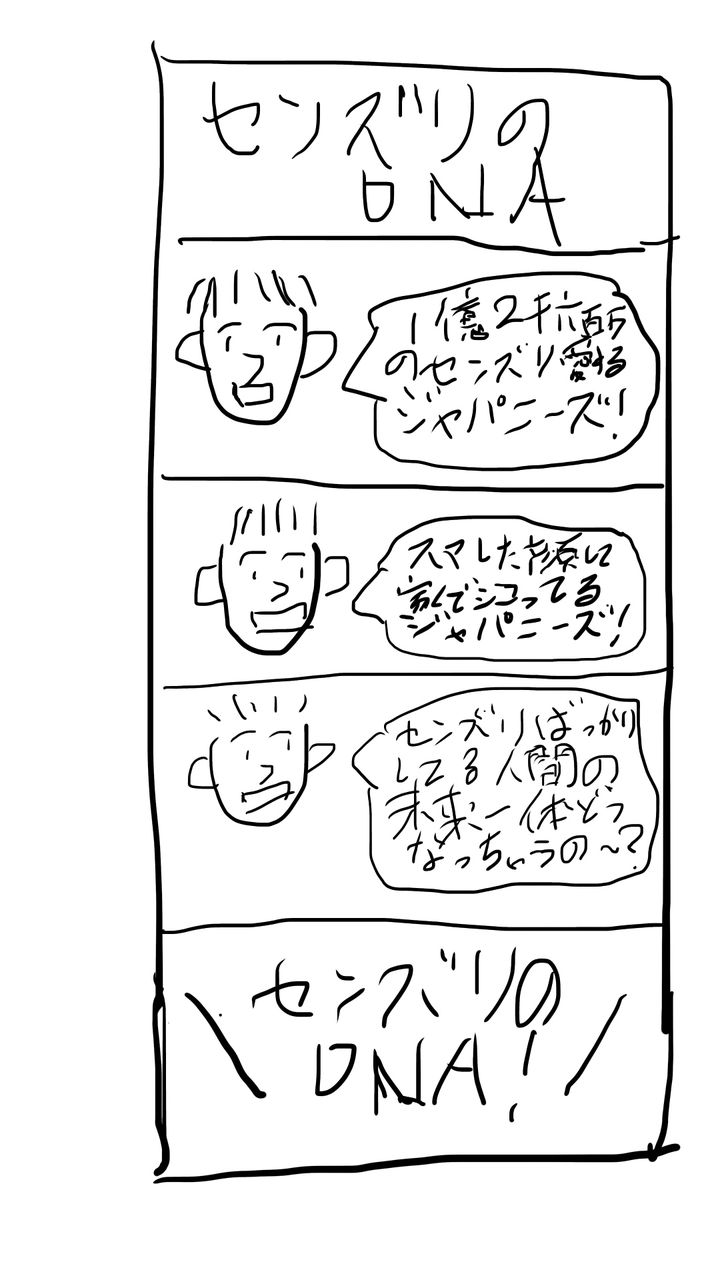 センズリの
DNA
1億2千六百万
のセンズリ愛する
ジャパニーズ!
スマした顔して
家でシコってる
ジャパニーズ!
センズリばっかり
してる人間の
未来一体どう
なっちゃうの~?
センズリの
DNA!